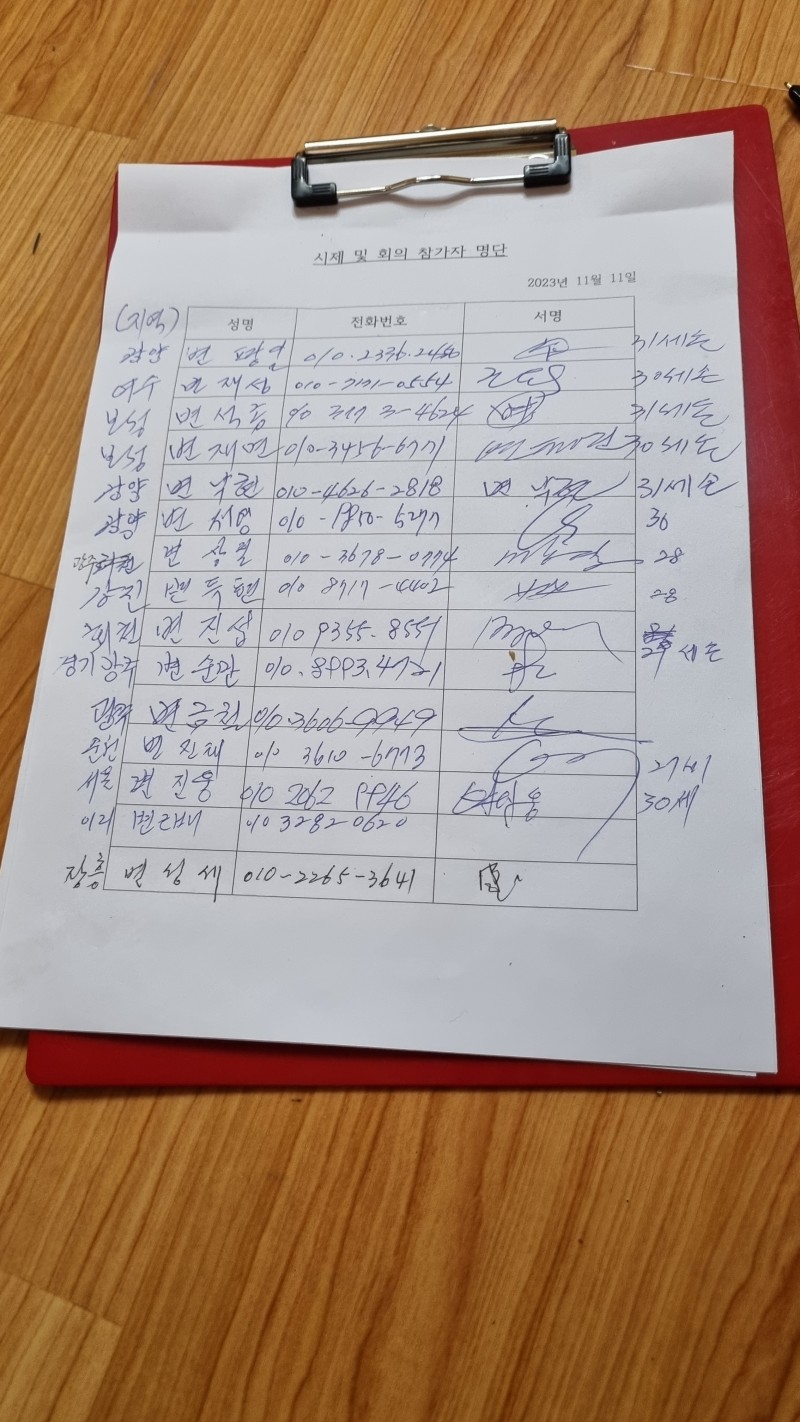 시제 및 회의 참가자 명단
2023년 11월 11일
(지역) 성명 전화번호 서명
광양 변 광일 010.2336.2480 31세손
여수 변재상 0554 30세손
보성 변석종 4624 31세손
보성 변재연 010-3456-6771 변재연 30세손
광양 변낙현 010-4626-2818 변낙현 31세손
광양 변 010-1850-5277 36
광주 변상필 010-3678-0774 28
강진 변득현 010 8717-4402 28
회진 변진섭 010 9355-8551 세손
경기광주 변순만 010.8993.4721
변금천 010.3606-9949
순천 변진태 010 3610-6773 27세
서울 변진웅 010 2062 9946 30세
이리 010 3282 0620
장흥 변성세 010-2265-3641